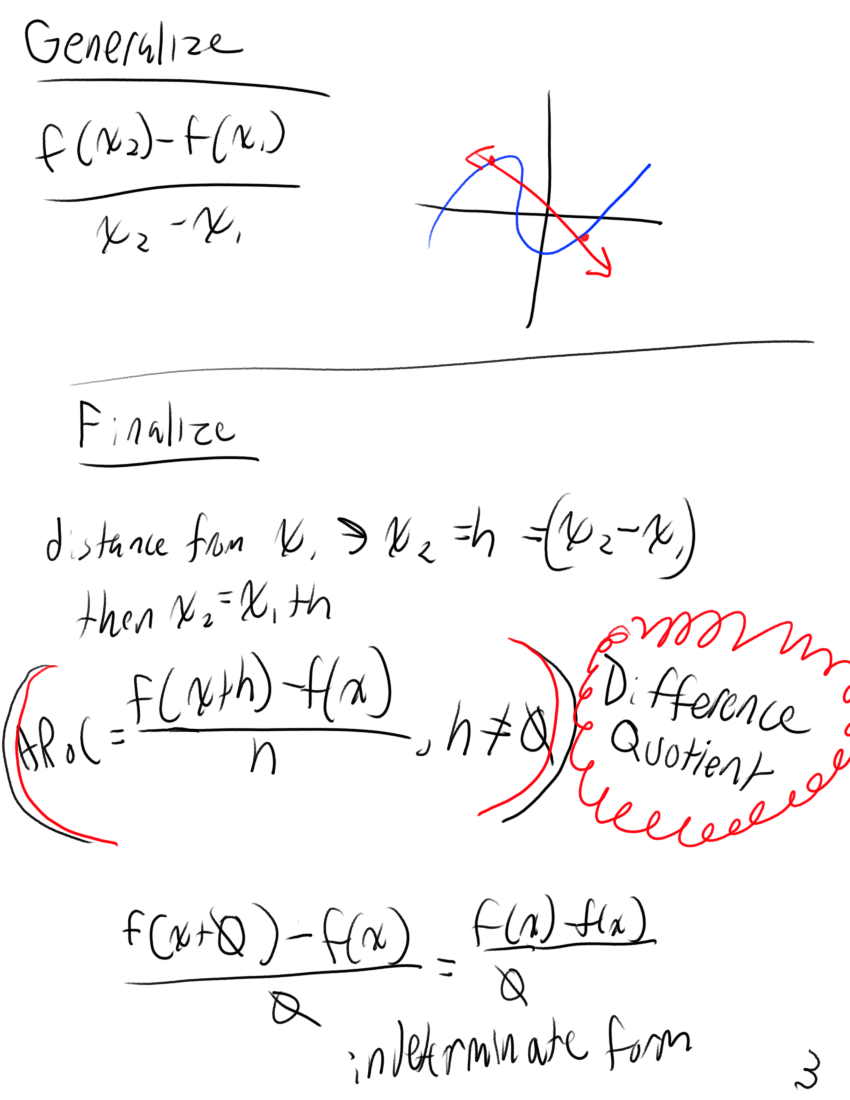 Generalize
f(x₂)-f(x₁)
x₂-x₁
Finalize
distance from x₁ → x₂ = h = (x₂-x₁)
then x₂=x₁+h
(ARoC = f(x+h)-f(x) / h , h ≠ 0)
Difference
Quotient
f(x+0)-f(x) / 0 = f(x)-f(x) / 0
indeterminate form
3